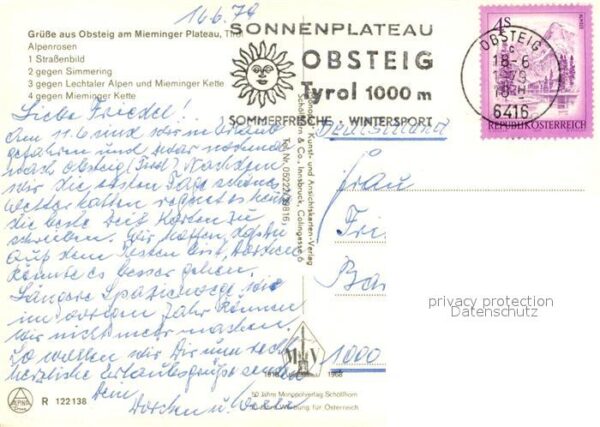 16.6.79
Grüße aus Obsteig am Mieminger Plateau,
Alpenrosen
1 Straßenbild
2 gegen Simmering
3 gegen Lechtaler Alpen und Mieminger Kette
4 gegen Mieminger Kette
SONNENPLATEAU
OBSTEIG
Tyrol 1000 m
SOMMERFRISCHE · WINTERSPORT
4S
OBSTEIG
c
18-6
1979
18H
6416
REPUBLIK ÖSTERREICH
Liebe Friedel!
Am 11.6 sind wir in Urlaub
gefahren und zwar nochmal
nach Obsteig (Tirol). Nachdem
wir die ersten Tage schönes
Wetter hatten regnet es heute
die beste Zeit Karten zu
schreiben. Wir hoffen, daß Du
auf dem Posten bist,
könnte es besser gehen.
Längere Spaziergänge wie
im vorigen Jahr können
wir nicht mehr machen.
So wollen wir Dir nun recht
herzliche Urlaubsgrüße senden
Dein
Dorchen u.
Kunst- und Ansichtskarten-Verlag
Schöllhorn & Co., Innsbruck, Colingasse 6
Tel. Nr. 05222/
Deutschland
Frau
Fri
Ba
1000
privacy protection
Datenschutz
M V
1918
1968
50 Jahre Monopolverlag Schöllhorn
Werbung für Österreich
R 122138